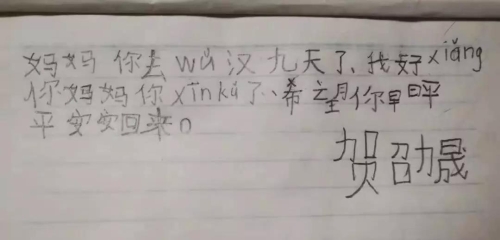 妈妈 你去 wǔ 汉 九天了、我好 xiǎng
你妈妈你 xīn kǔ 了、希望你早日平
平安安回来。
贺邵晟